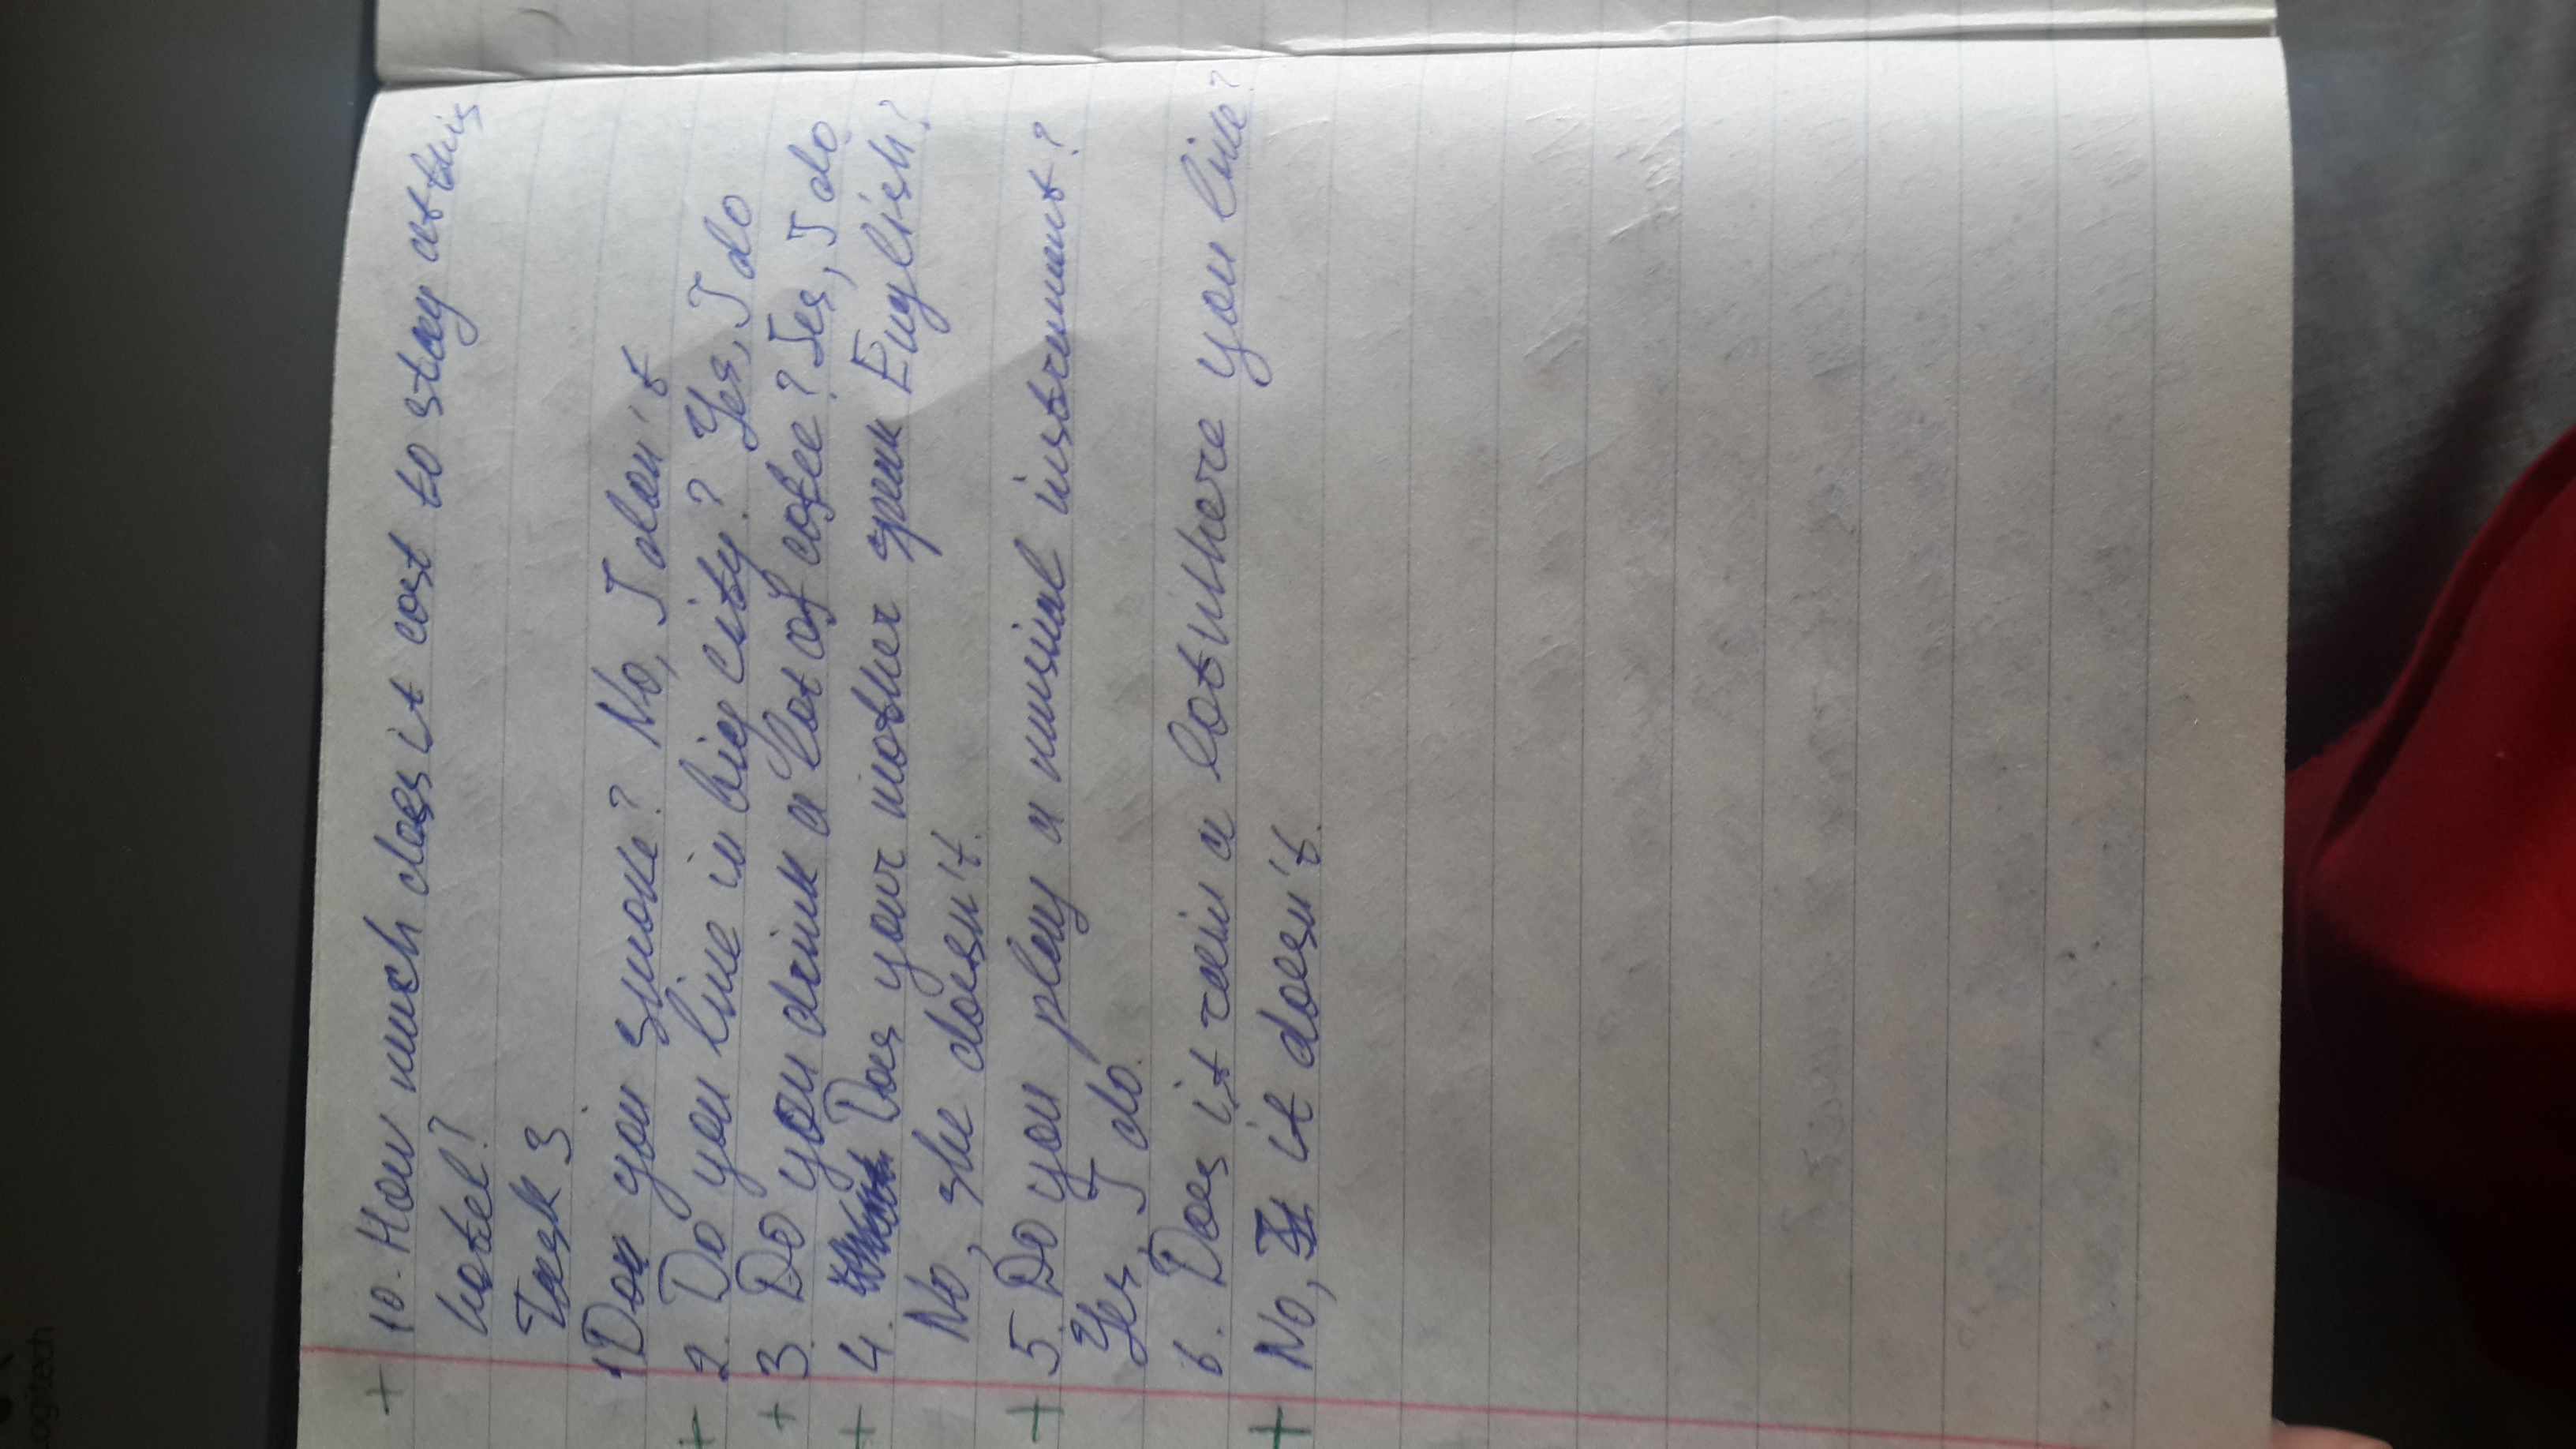 Logitech
+ 10. How much does it cost to stay at this
hotel?
Task 3.
1 Do you smoke? No, I don't
+ 2. Do you live in big city? Yes, I do
+ 3. Do you drink a lot of cofee? Yes, I do.
+ 4. Does your mother speak English?
No, she doesn't.
+ 5. Do you play a musical instrument?
Yes, I do.
6. Does it rain a lot where you live?
+ No, it doesn't.